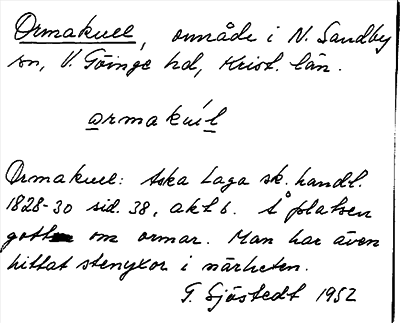 Ormakull, område i N. Sandby
sn, V. Göinge hd, Krist. län.
ormakúl
Ormakull: Aska Laga sk. handl.
1828-30 sid. 38, akt 6. Å platsen
gott om ormar. Man har även
hittat stenyxor i närheten.
T. Sjöstedt 1952